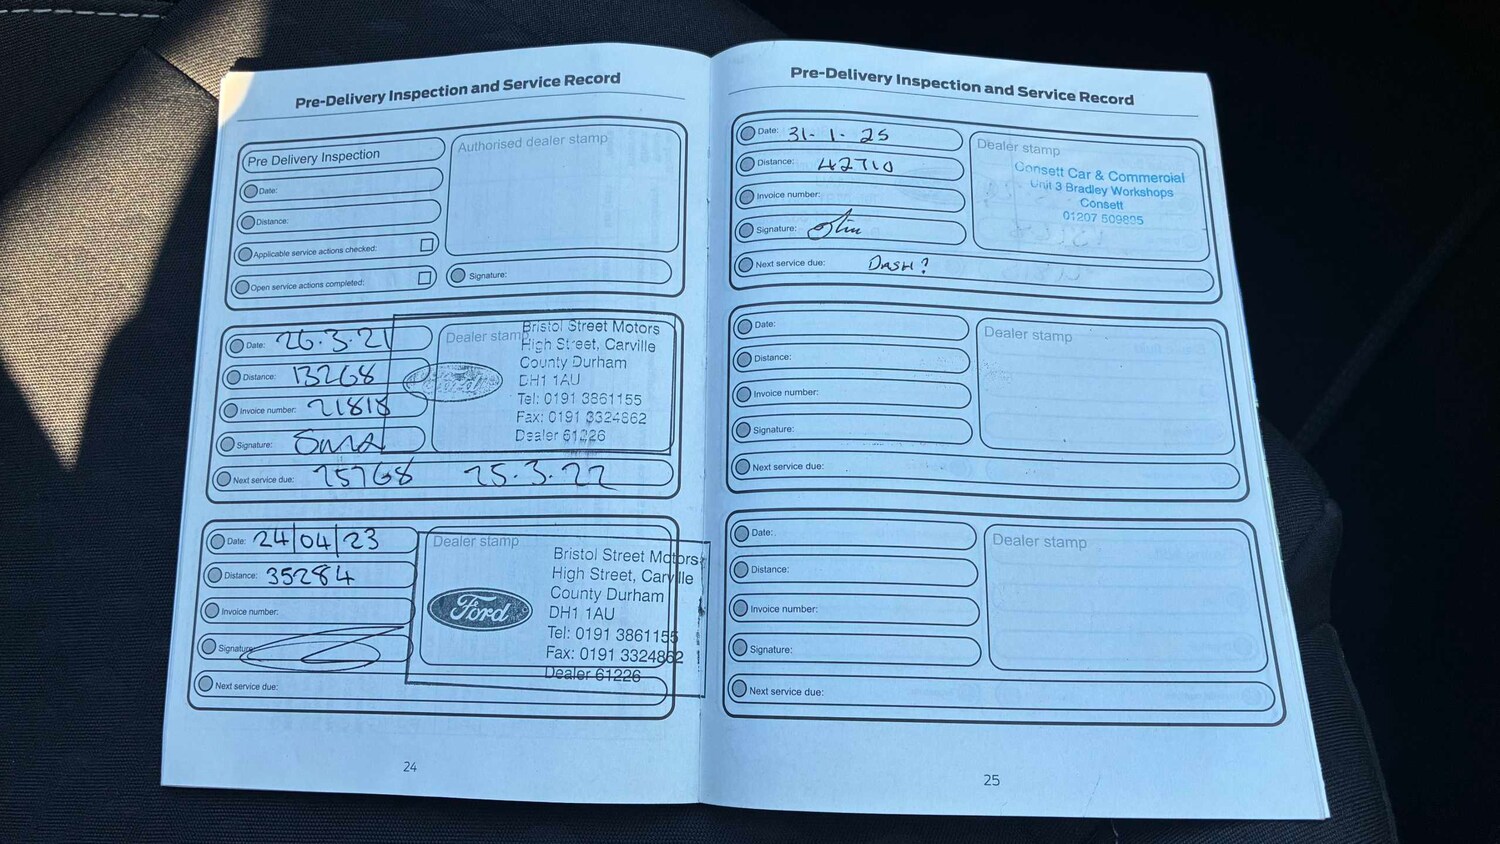 Pre-Delivery Inspection and Service Record
Pre Delivery Inspection
Date:
Distance:
Applicable service actions checked:
Open service actions completed:
Authorised dealer stamp
Signature:
Date: 26.3.21
Distance: 13268
Invoice number: 21818
Signature:
Next service due: 25768 25.3.22
Dealer stamp
Bristol Street Motors
High Street, Carville
County Durham
DH1 1AU
Tel: 0191 3861155
Fax: 0191 3324862
Dealer 61226
Date: 24/04/23
Distance: 35284
Invoice number:
Signature:
Next service due:
Dealer stamp
Ford
Bristol Street Motors
High Street, Carville
County Durham
DH1 1AU
Tel: 0191 3861155
Fax: 0191 3324862
Dealer 61226
24
Pre-Delivery Inspection and Service Record
Date: 31-1-25
Distance: 42710
Invoice number:
Signature:
Next service due: DASH?
Dealer stamp
Consett Car & Commercial
Unit 3 Bradley Workshops
Consett
01207 509895
Date:
Distance:
Invoice number:
Signature:
Next service due:
Dealer stamp
Date:
Distance:
Invoice number:
Signature:
Next service due:
Dealer stamp
25